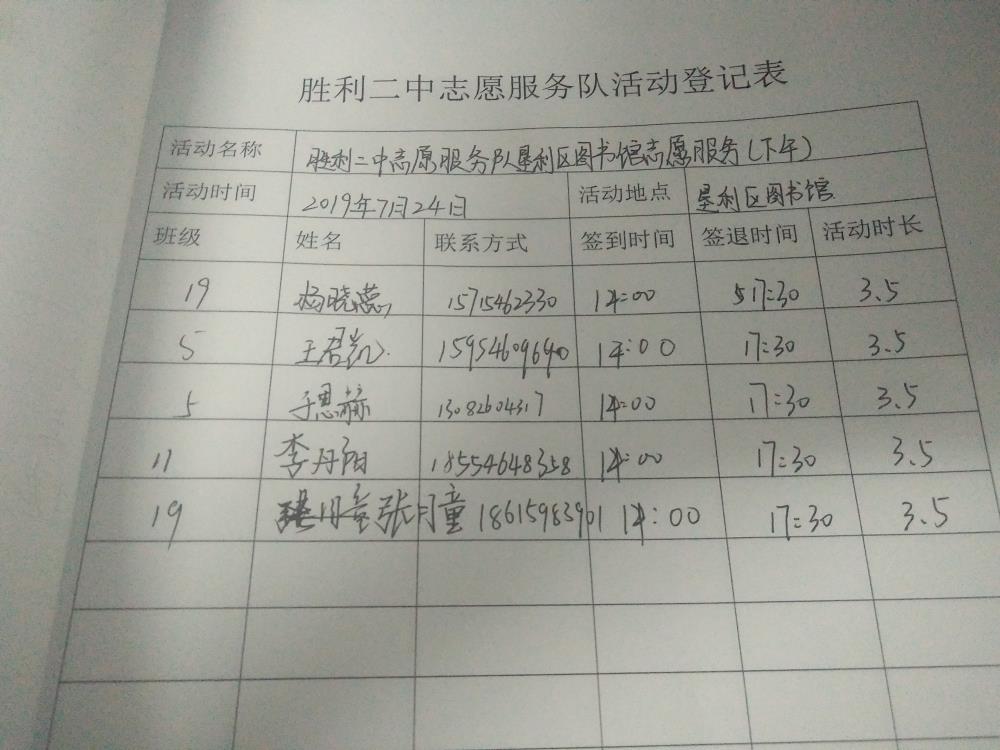 胜利二中志愿服务队活动登记表
活动名称 胜利二中志愿服务队垦利区图书馆志愿服务(下午)
活动时间 2019年7月24日 活动地点 垦利区图书馆
班级 姓名 联系方式 签到时间 签退时间 活动时长
19 杨晓蕊 15715462330 14:00 17:30 3.5
5 王君凯 15954609690 14:00 17:30 3.5
5 于恩 13082604317 14:00 17:30 3.5
11 李丹阳 18554648358 14:00 17:30 3.5
19 张月童 18615983901 14:00 17:30 3.5